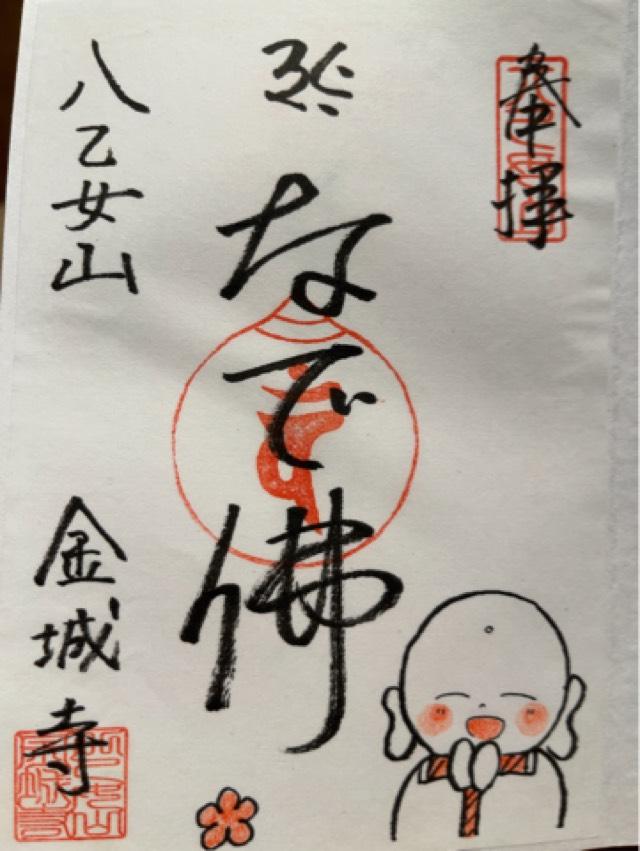 奉拝
なで佛
八乙女山
金城寺